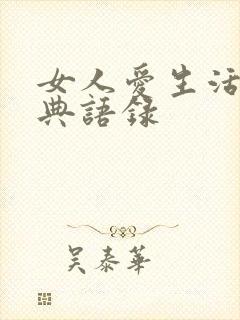 女人愛生活
典語錄
吳泰華